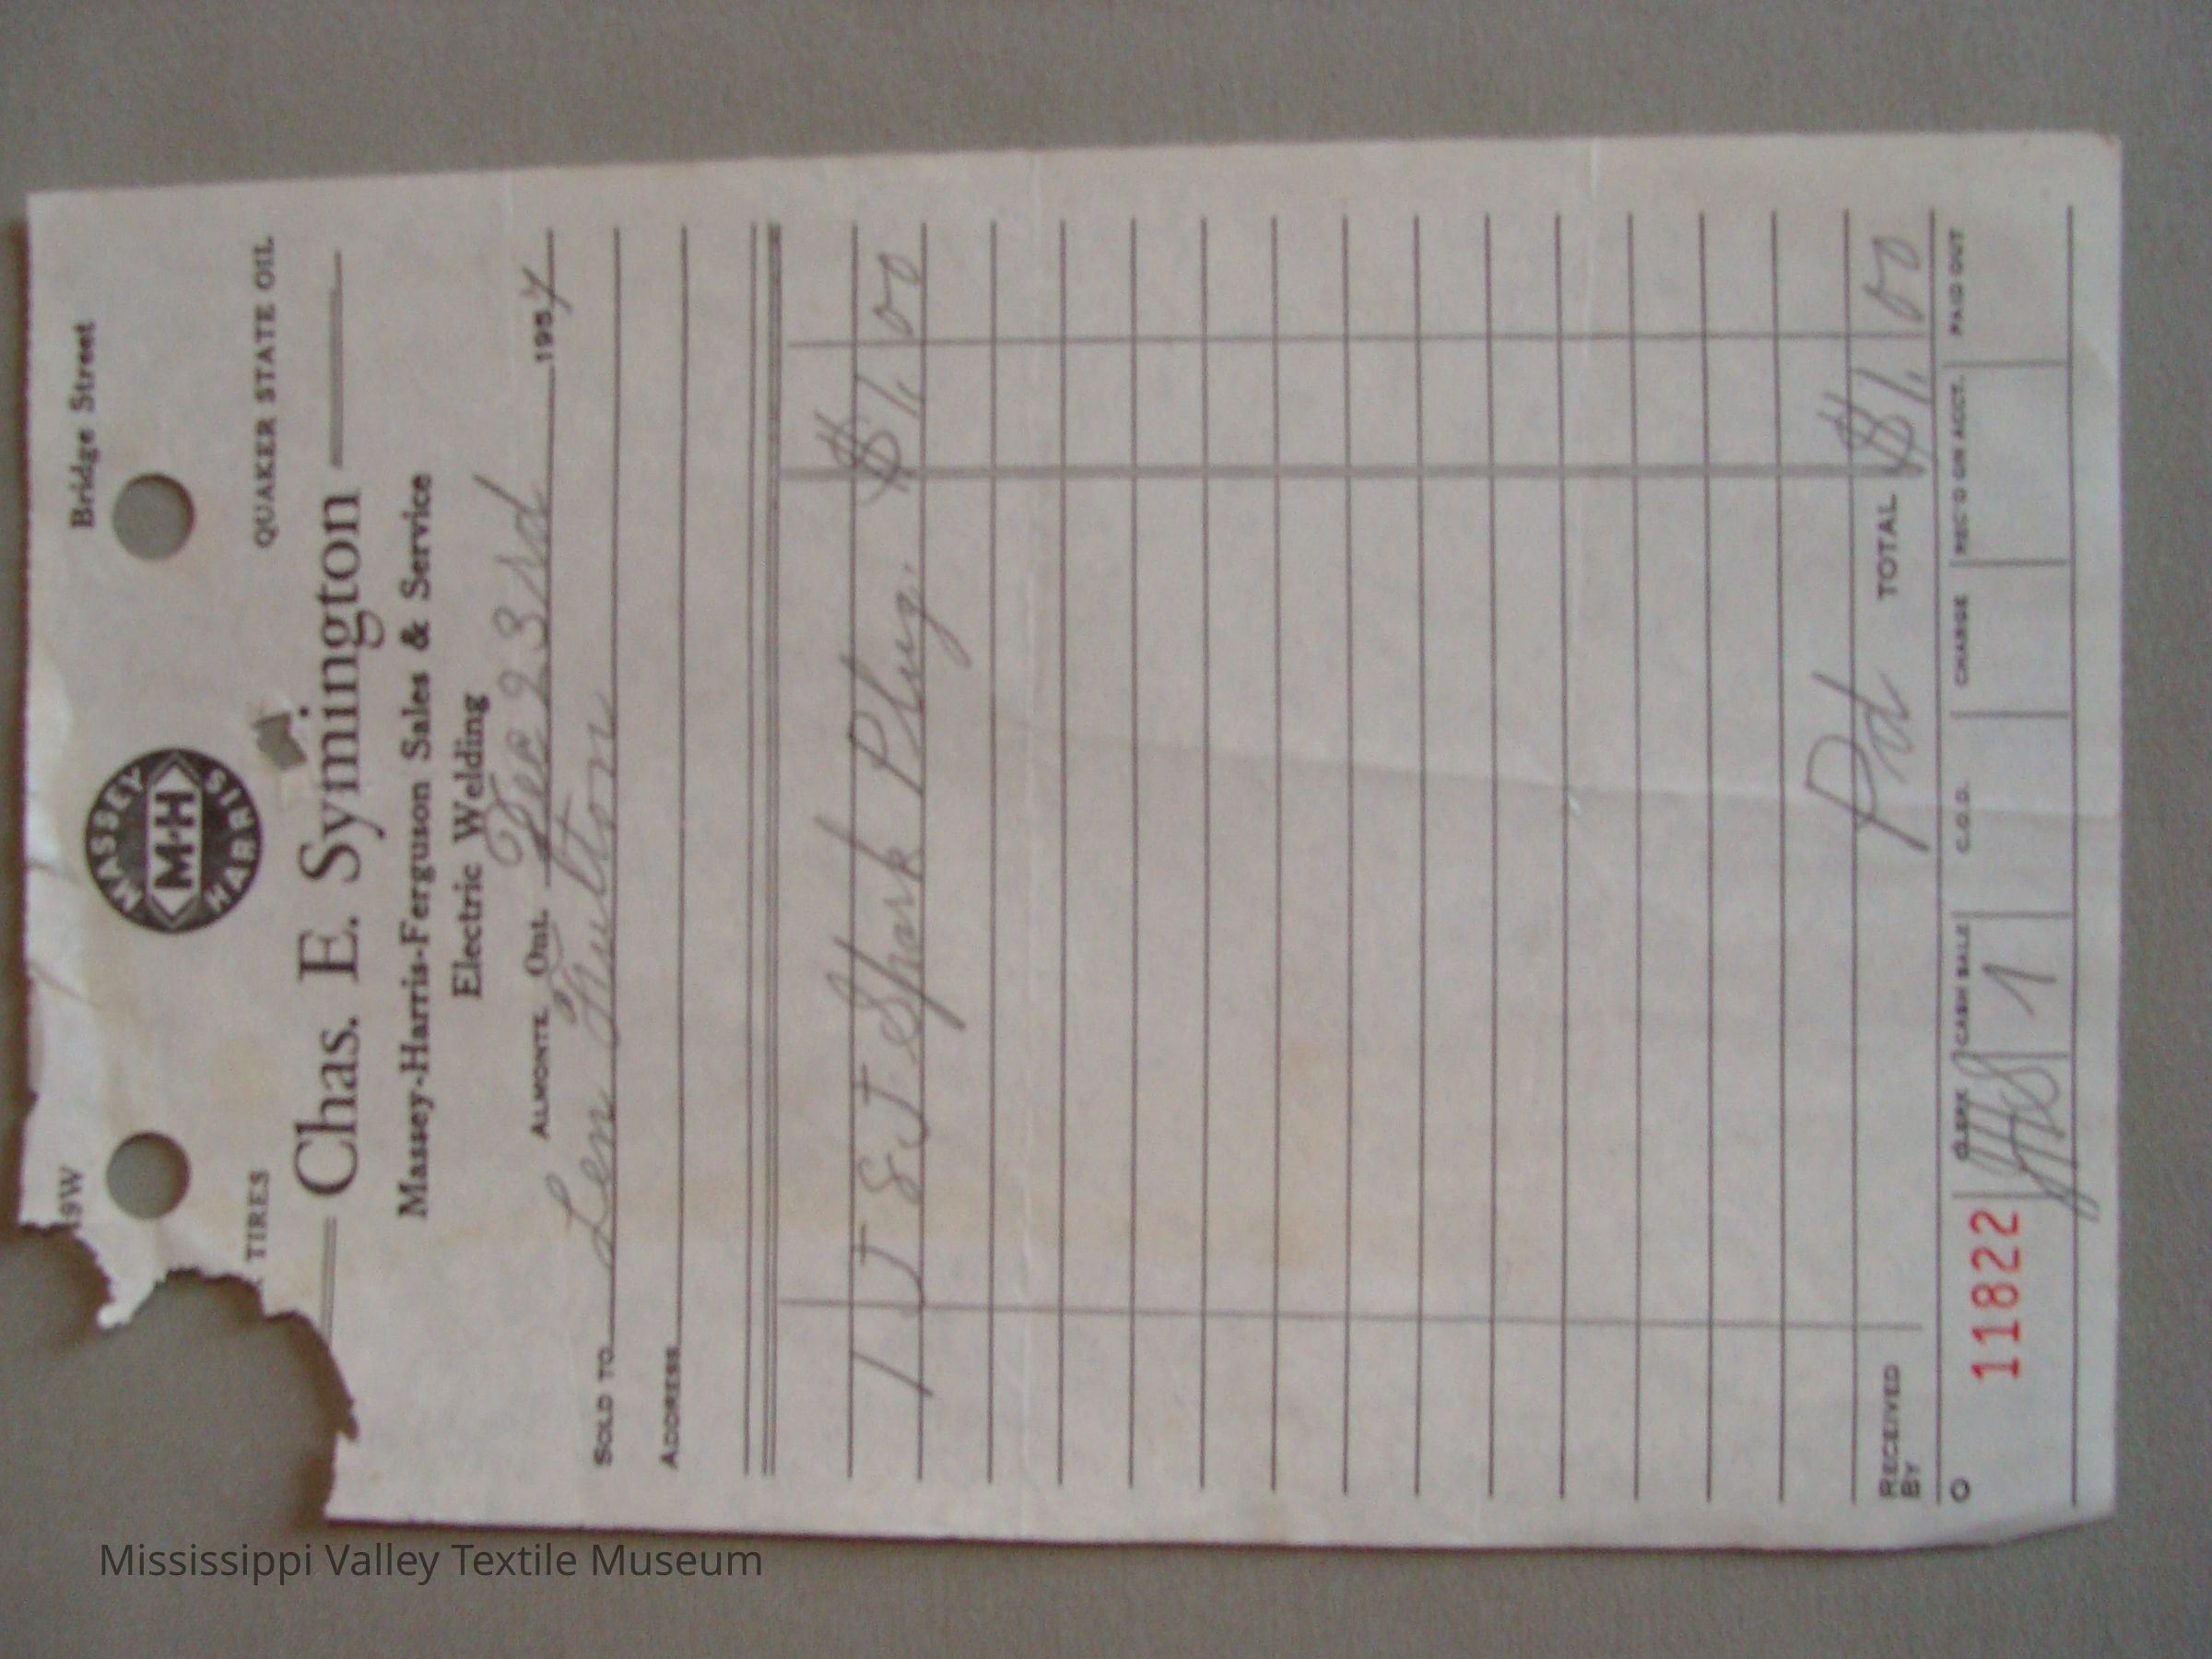 Bridge Street
MASSEY
M-H
HARRIS
TIRES QUAKER STATE OIL
Chas. E. Symington
Massey-Harris-Ferguson Sales & Service
Electric Welding
ALMONTE, Ont. Dec 23rd 1954
SOLD TO Len Fulton
ADDRESS
1 J 8 J Spark Plug. $1.00
Pd TOTAL $1.00
RECEIVED
BY
CLERK CASH SALE C.O.D. CHARGE REC'D ON ACCT. PAID OUT
O 11822 1
Mississippi Valley Textile Museum